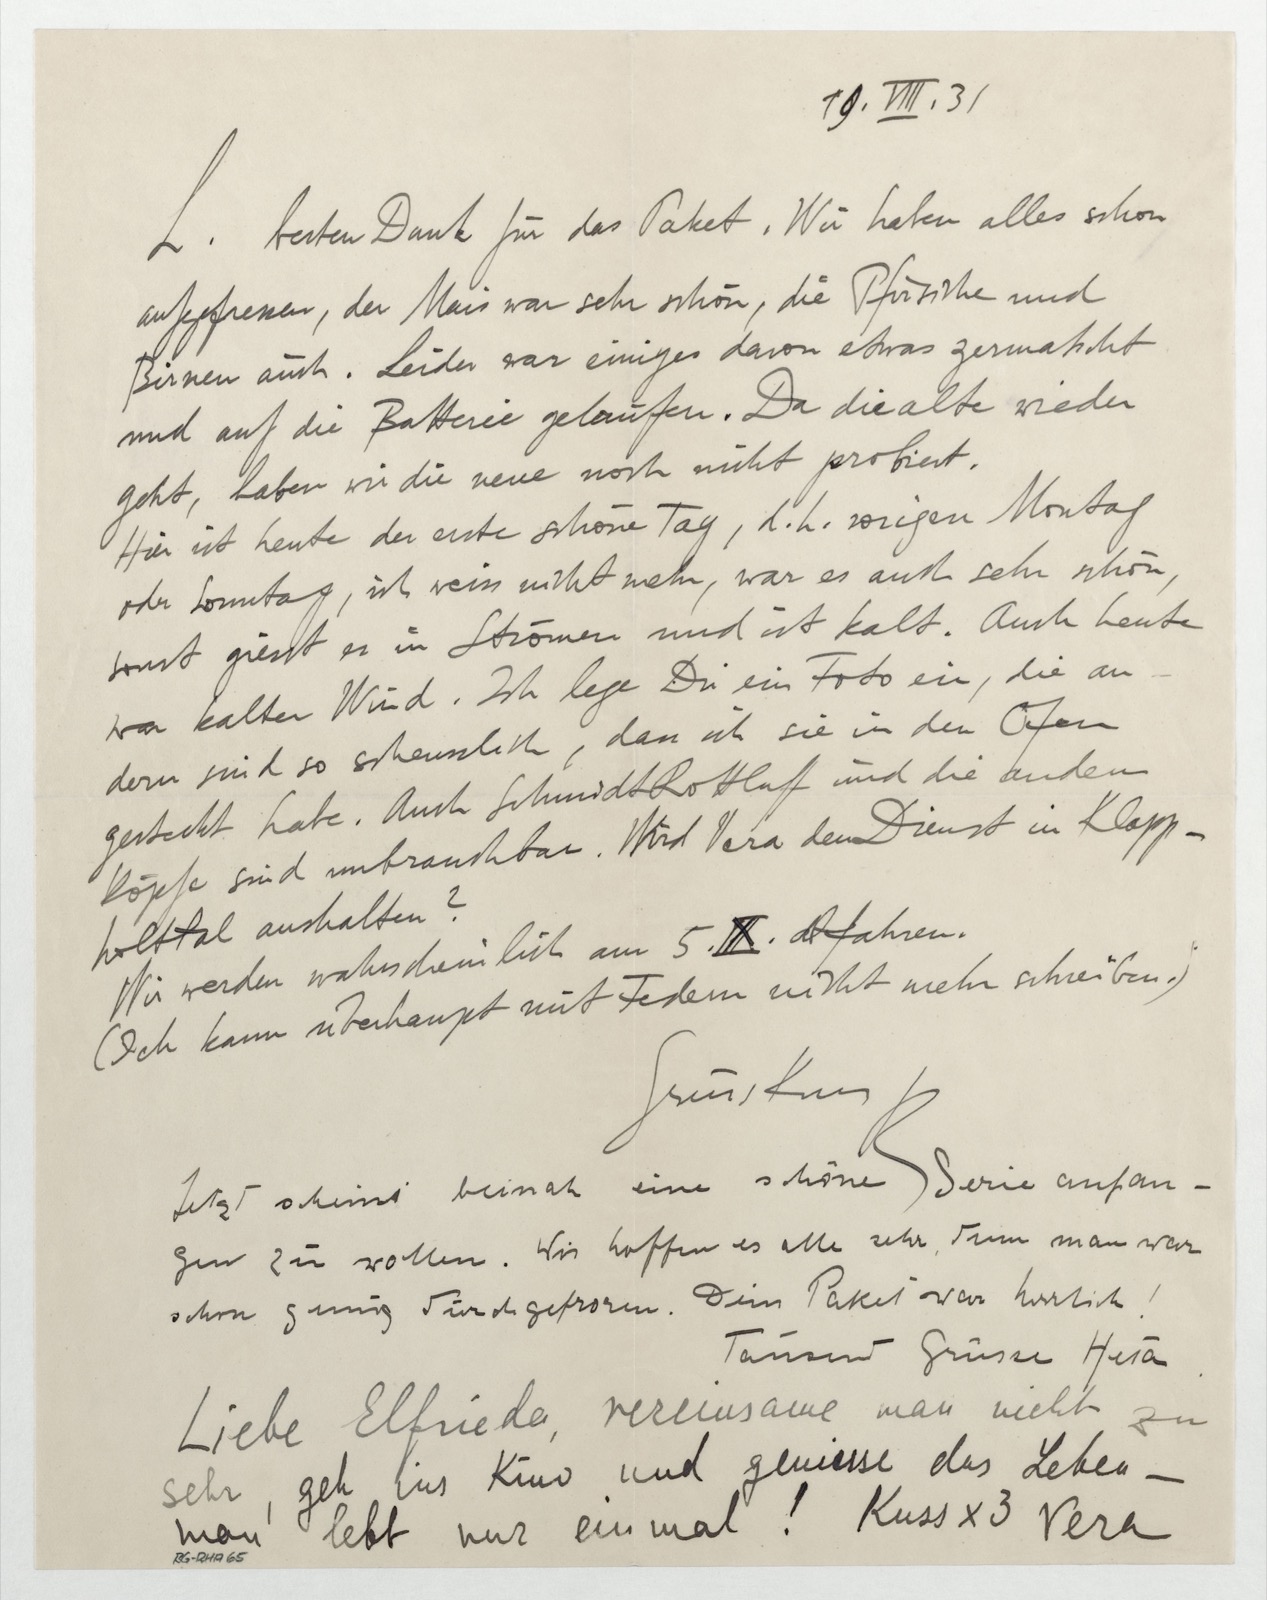 19. VIII. 31
L. besten Dank für das Paket. Wir haben alles schon
aufgefressen, der Mais war sehr schön, die Pfirsiche und
Birnen auch. Leider war einiges davon etwas zermatscht
und auf die Batterie gelaufen. Da die alte wieder
geht, haben wir die neue noch nicht probiert.
Hier ist heute der erste schöne Tag, d.h. vorigen Montag
oder Sonntag, ich weiss nicht mehr, war es auch sehr schön,
sonst giesst es in Strömen und ist kalt. Auch heute
war kalter Wind. Ich lege Dir ein Foto ein, die an-
dern sind so scheusslich, dass ich sie in den Ofen
gesteckt habe. Auch Schmidt Rottluff und die andern
Köpfe sind unbrauchbar. Wird Vera den Dienst in Klapp-
holttal aushalten?
Wir werden wahrscheinlich am 5. IX. abfahren.
(Ich kann überhaupt mit Federn nicht mehr schreiben.)
Gruss Kuss
Jetzt scheint beinah eine schöne Serie anfan-
gen zu wollen. Wir hoffen es alle sehr, denn man war
schon genug durchgefroren. Dein Paket war herrlich!
Tausend Grüsse Heta
Liebe Elfriede, vereinsame man nicht zu
sehr, geh ins Kino und geniesse das Leben -
man lebt nur einmal! Kuss x 3 Vera
RG-RHA 65